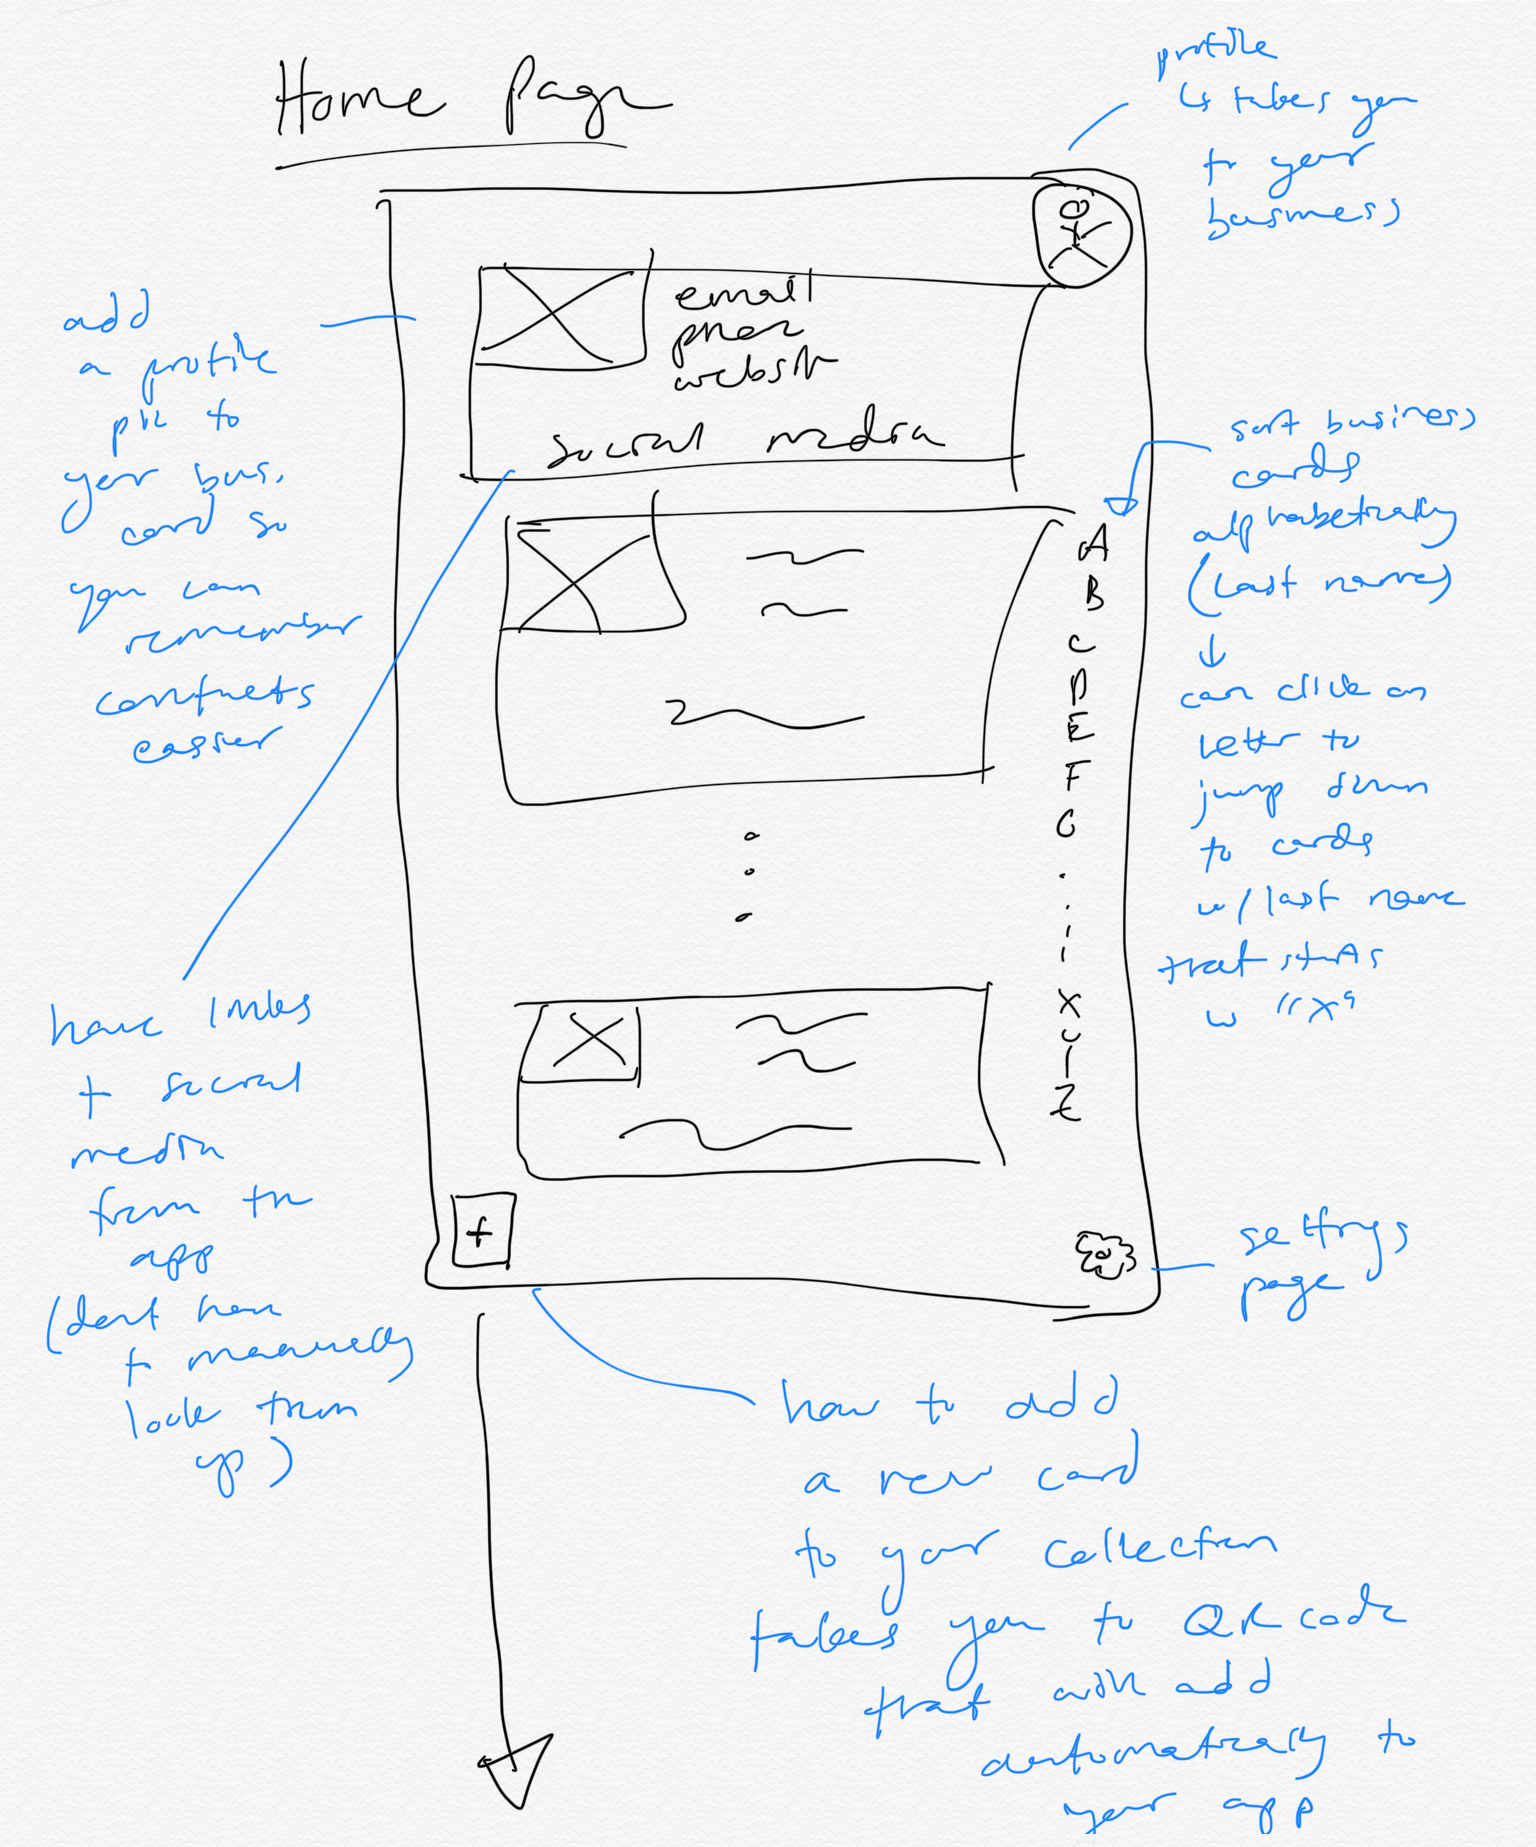 Home Page
profile
↳ takes you
to your
business
email
phone
website
social media
add
a profile
pic to
your bus.
card so
you can
remember
contacts
easier
sort business
cards
alphabetically
(last name)
↓
can click on
letter to
jump down
to cards
w/ last name
that starts
w "X"
A
B
C
D
E
F
G
.
.
.
X
Y
Z
have links
to social
media
from the
app
(don't have
to manually
look them
up)
+
settings
page
how to add
a new card
to your collection
takes you to QR code
that will add
automatically to
your app